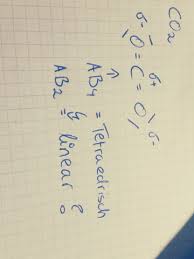 CO2
σ- σ+ σ-
O=C=O
AB4 = Tetraedrisch
AB2 = linear?